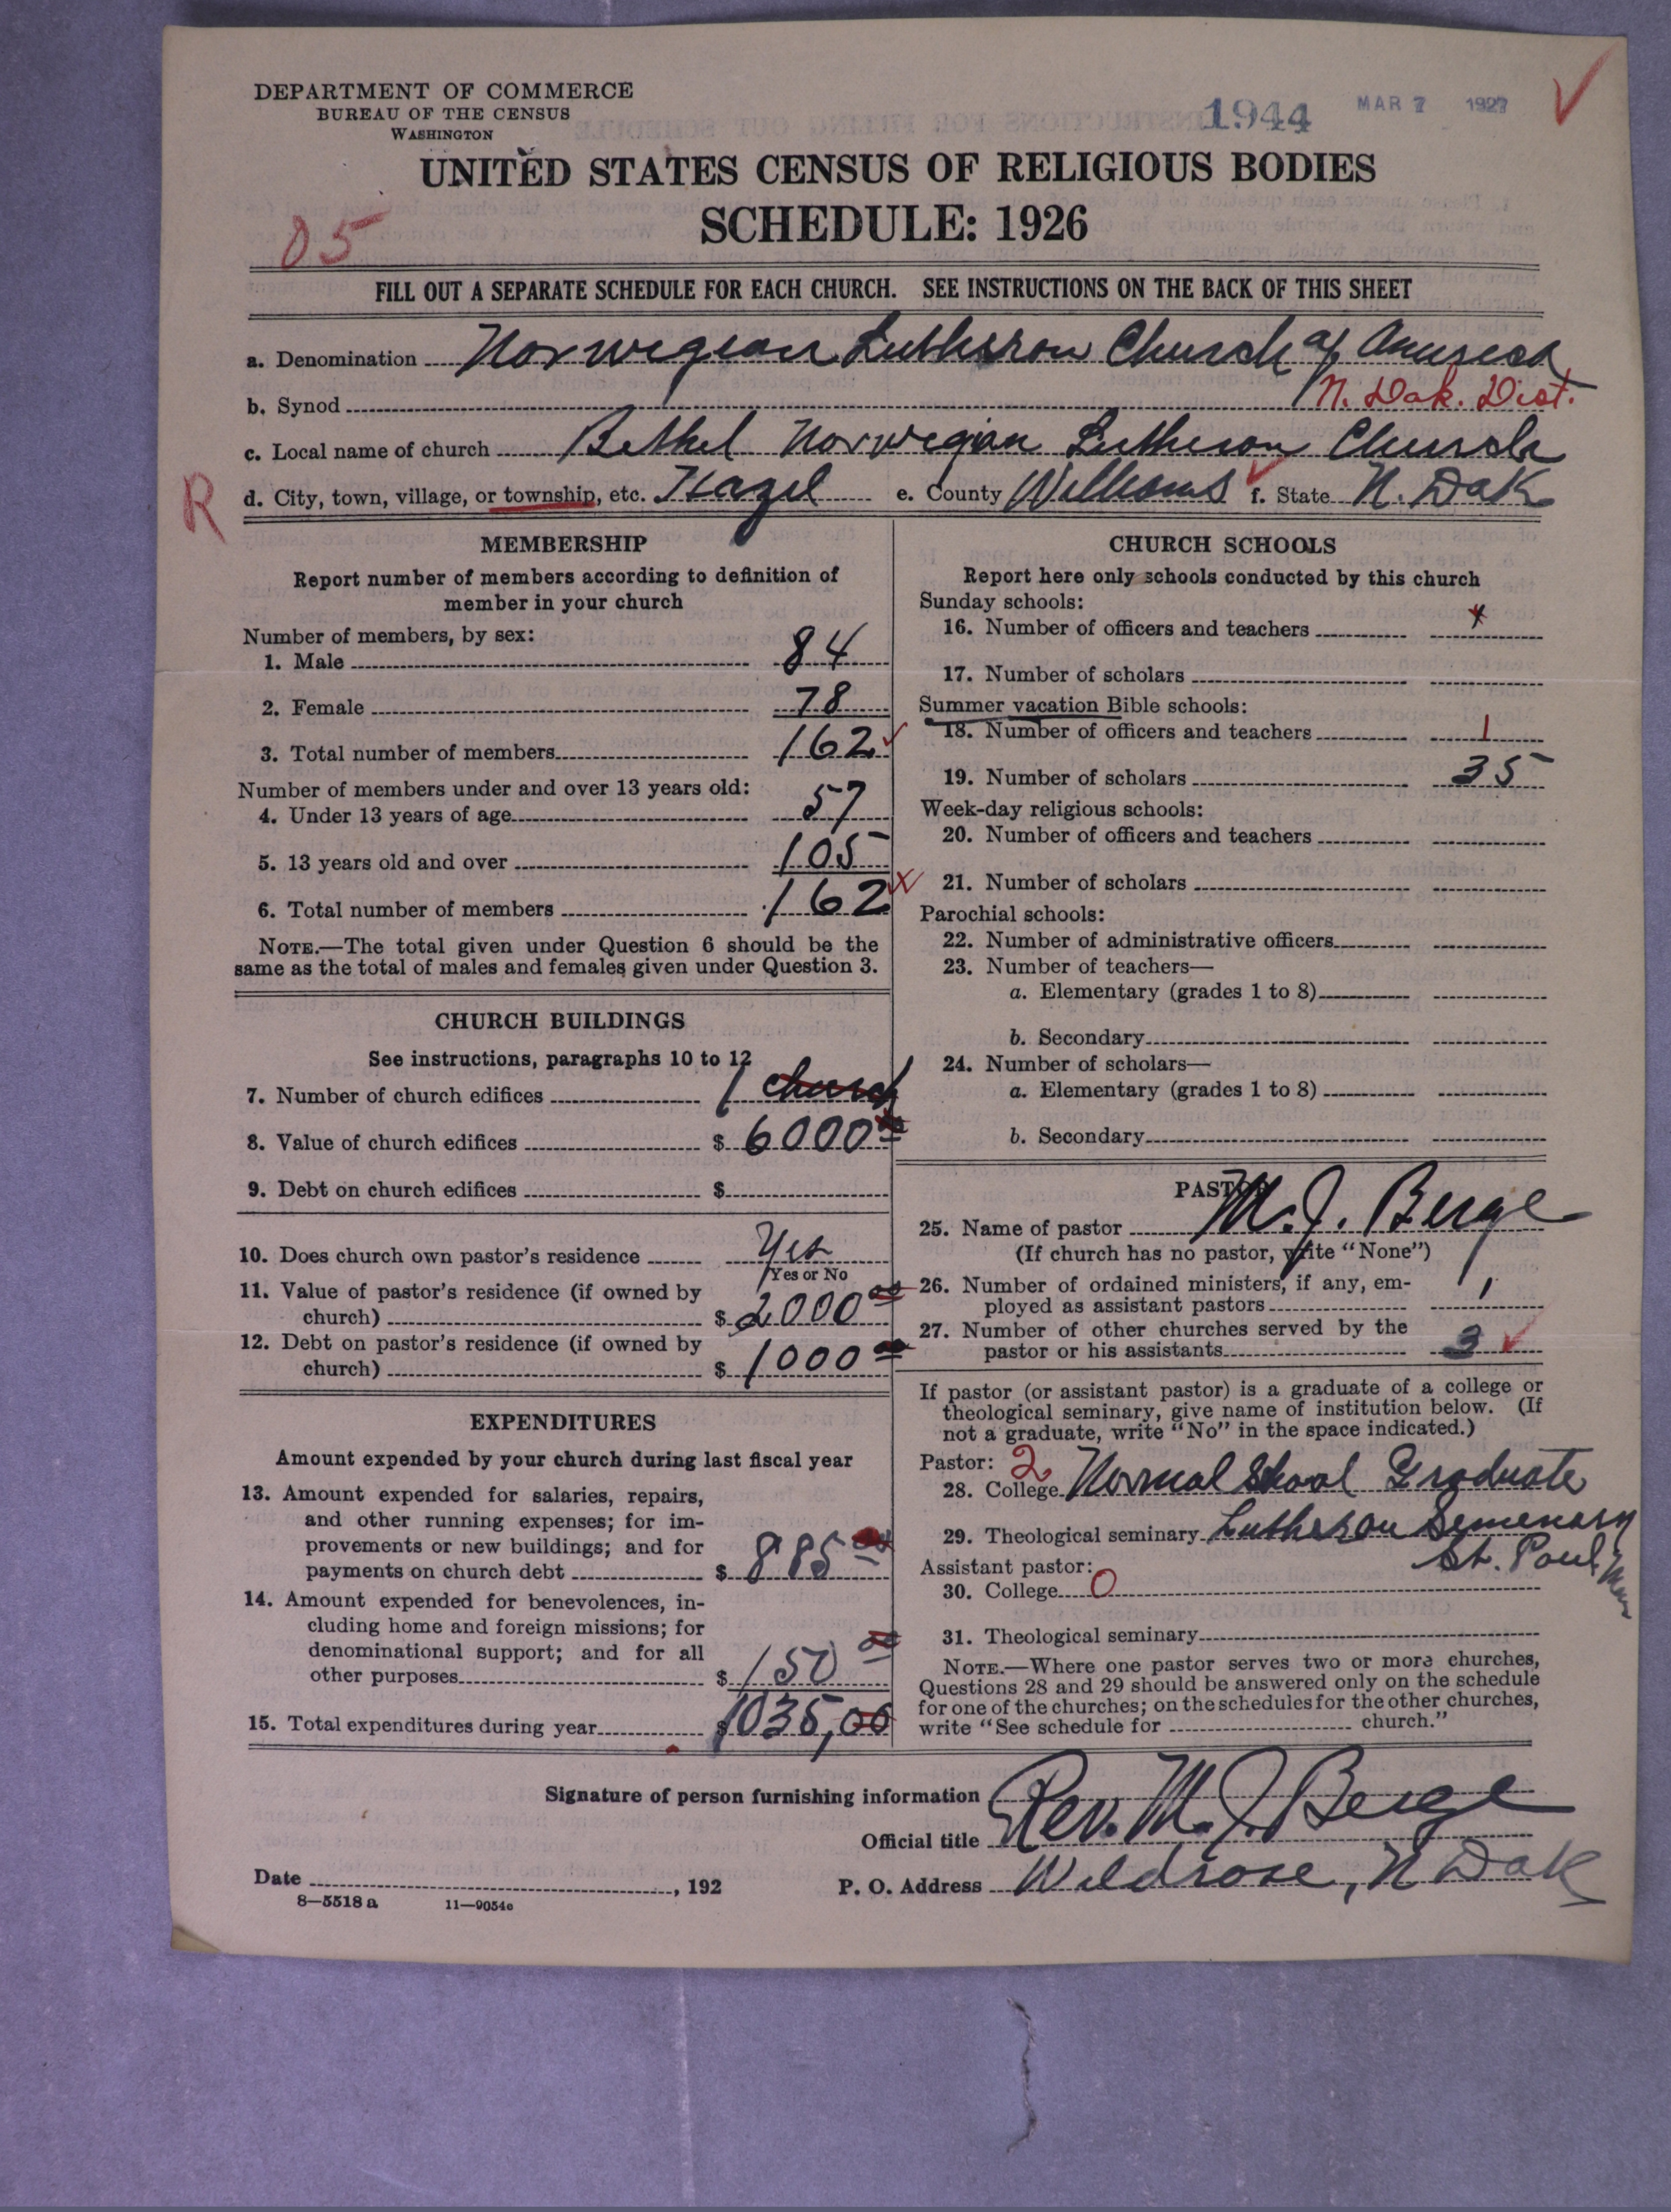 DEPARTMENT OF COMMERCE
BUREAU OF THE CENSUS
WASHINGTON
1944 MAR 7 1927
UNITED STATES CENSUS OF RELIGIOUS BODIES
SCHEDULE: 1926
05
FILL OUT A SEPARATE SCHEDULE FOR EACH CHURCH. SEE INSTRUCTIONS ON THE BACK OF THIS SHEET
a. Denomination Norwegian Lutheran Church of America
b. Synod N. Dak. Dist.
c. Local name of church Bethel Norwegian Lutheran Church
R d. City, town, village, or township, etc. Hazel e. County Williams f. State N. Dak
MEMBERSHIP
Report number of members according to definition of
member in your church
Number of members, by sex:
1. Male 84
2. Female 78
3. Total number of members 162
Number of members under and over 13 years old:
4. Under 13 years of age 57
5. 13 years old and over 105
6. Total number of members 162
NOTE.—The total given under Question 6 should be the
same as the total of males and females given under Question 3.
CHURCH BUILDINGS
See instructions, paragraphs 10 to 12
7. Number of church edifices 1 church
8. Value of church edifices $ 6000 00
9. Debt on church edifices $
10. Does church own pastor's residence Yes
Yes or No
11. Value of pastor's residence (if owned by
church) $ 2000 00
12. Debt on pastor's residence (if owned by
church) $ 1000 00
EXPENDITURES
Amount expended by your church during last fiscal year
13. Amount expended for salaries, repairs,
and other running expenses; for im-
provements or new buildings; and for
payments on church debt $ 885 00
14. Amount expended for benevolences, in-
cluding home and foreign missions; for
denominational support; and for all
other purposes $ 150 00
15. Total expenditures during year $ 1035,00
CHURCH SCHOOLS
Report here only schools conducted by this church
Sunday schools:
16. Number of officers and teachers
17. Number of scholars
Summer vacation Bible schools:
18. Number of officers and teachers 1
19. Number of scholars 35
Week-day religious schools:
20. Number of officers and teachers
21. Number of scholars
Parochial schools:
22. Number of administrative officers
23. Number of teachers—
a. Elementary (grades 1 to 8)
b. Secondary
24. Number of scholars—
a. Elementary (grades 1 to 8)
b. Secondary
PASTOR
25. Name of pastor M. J. Berge
(If church has no pastor, write "None")
26. Number of ordained ministers, if any, em-
ployed as assistant pastors 1
27. Number of other churches served by the
pastor or his assistants 3
If pastor (or assistant pastor) is a graduate of a college or
theological seminary, give name of institution below. (If
not a graduate, write "No" in the space indicated.)
Pastor: 2
28. College Normal School Graduate
29. Theological seminary Lutheran Semenary
St. Paul Minn
Assistant pastor:
30. College 0
31. Theological seminary
NOTE.—Where one pastor serves two or more churches,
Questions 28 and 29 should be answered only on the schedule
for one of the churches; on the schedules for the other churches,
write "See schedule for church."
Signature of person furnishing information Rev. M. J. Berge
Official title
Date , 192 P. O. Address Wildrose, N Dak
8—5518 a 11—9054c